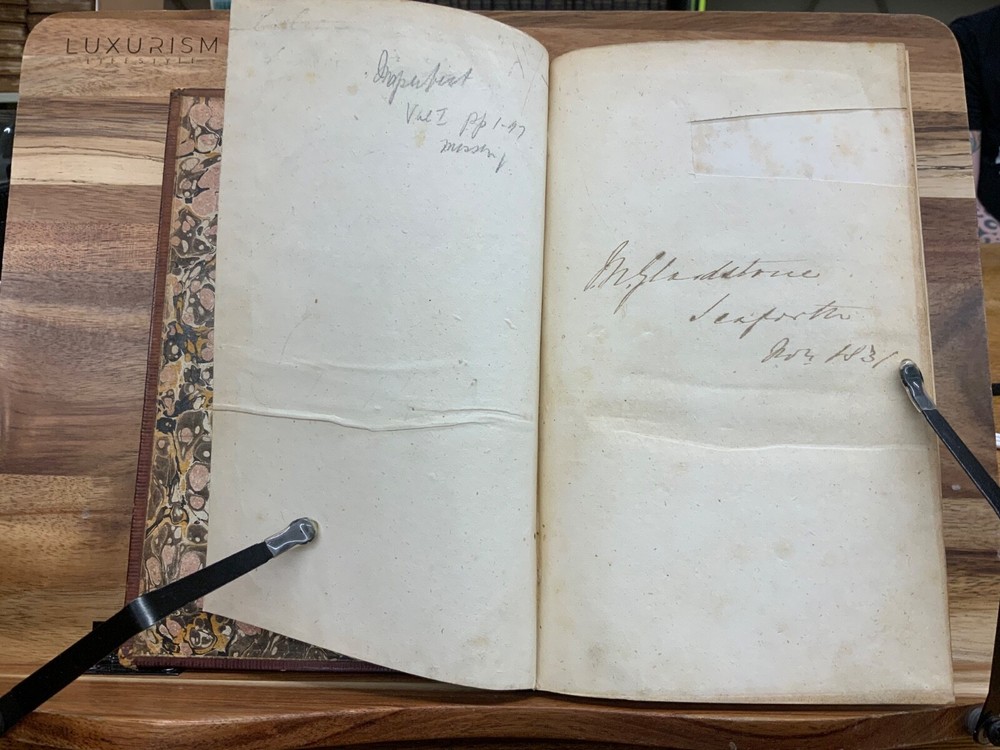 LUXURISM
LIFESTYLE
Imperfect
Vol I pp 1-97
missing
M. Gladstone
Seaforth
Nov 1831